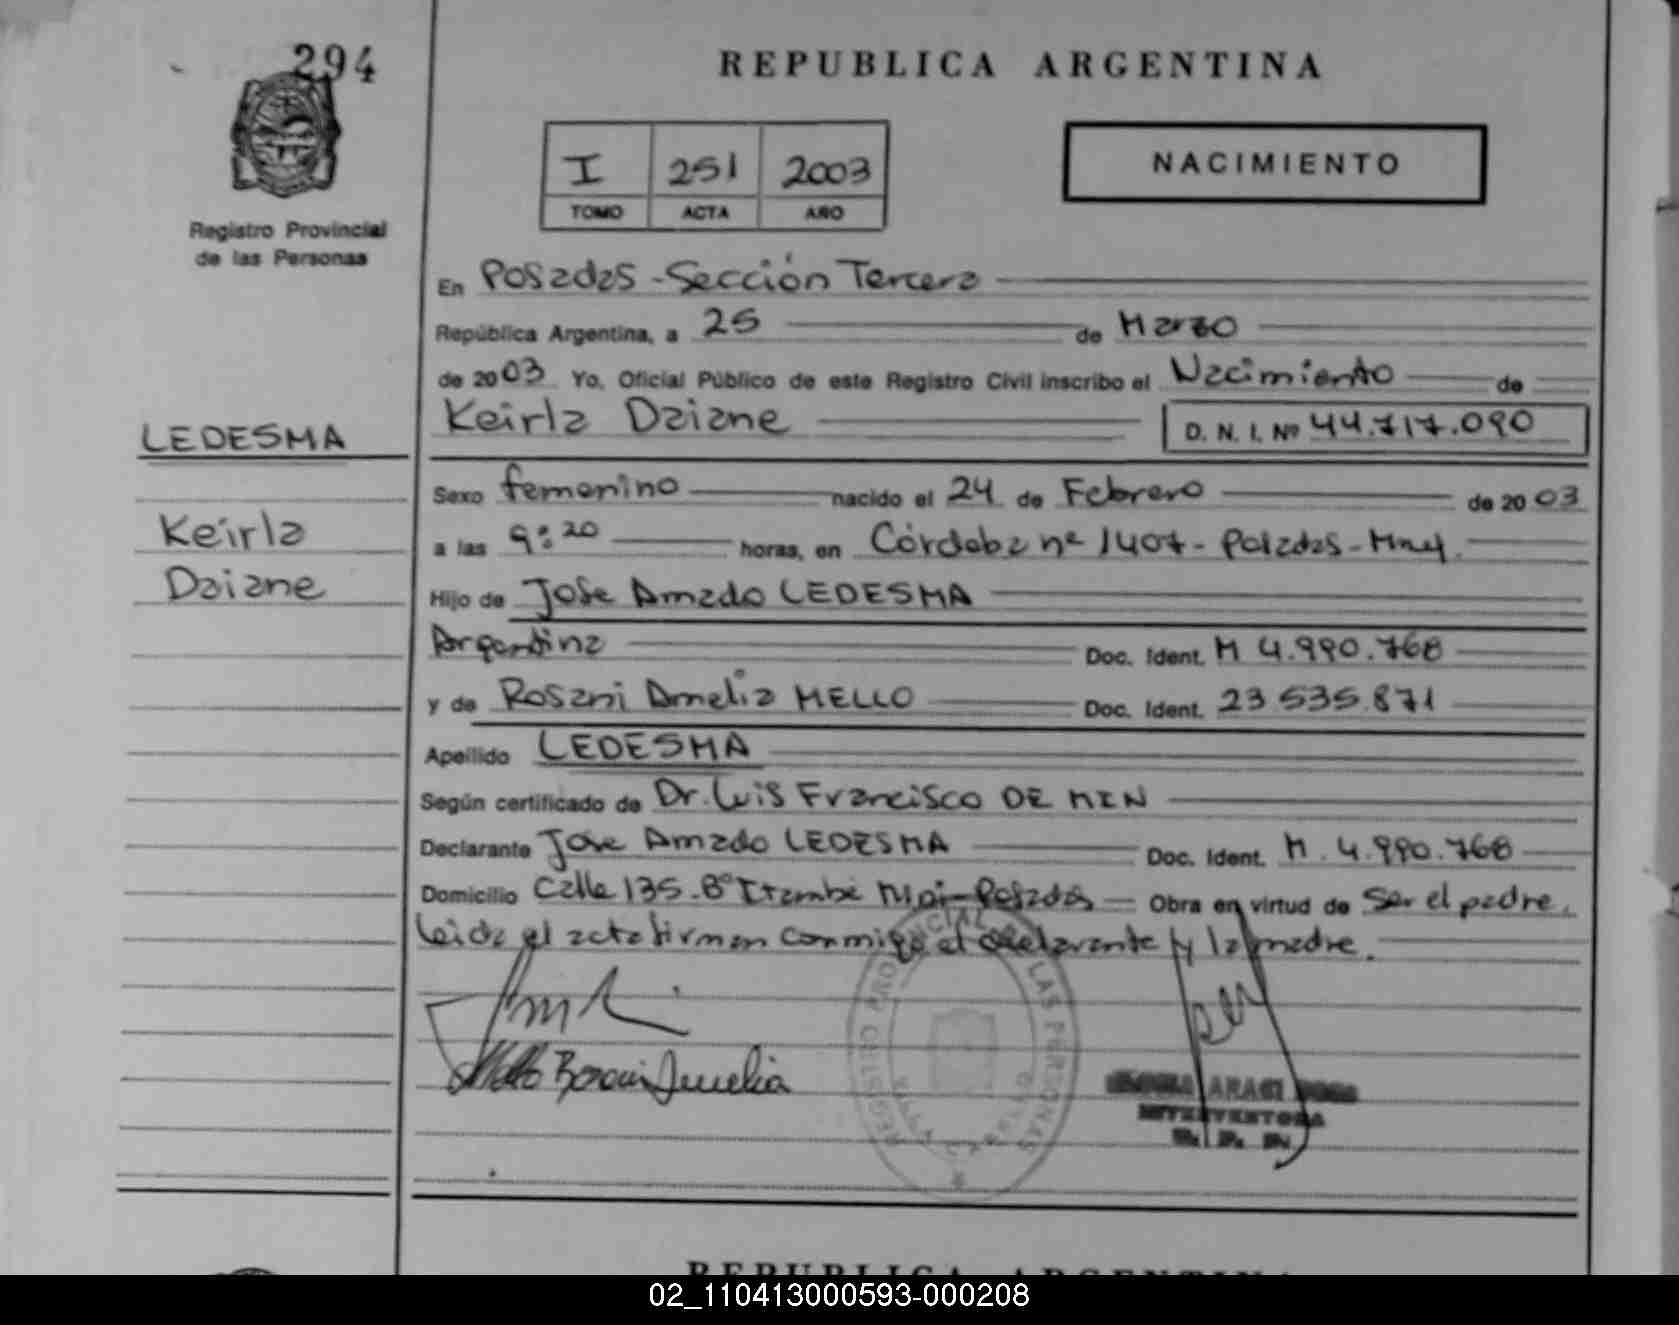 294
REPUBLICA ARGENTINA
I 251 2003
TOMO ACTA AÑO
NACIMIENTO
Registro Provincial
de las Personas
En Posadas - Sección Tercera
República Argentina, a 25 de Marzo
de 2003 Yo, Oficial Público de este Registro Civil inscribo el Nacimiento de
Keirla Daiane D. N. I. Nº 44.717.090
LEDESMA
Sexo femenino nacido el 24 de Febrero de 2003
Keirla
a las 9:20 horas, en Córdoba nº 1407 - Posadas - Mnes.
Daiane
Hijo de Jose Amado LEDESMA
Argentina Doc. Ident. M 4.990.768
y de Rosani Amelia MELLO Doc. Ident. 23 535.871
Apellido LEDESMA
Según certificado de Dr. Luis Francisco DE MIN
Declarante Jose Amado LEDESMA Doc. Ident. M. 4.990.768
Domicilio Calle 135 - Bº Itambé Mini - Posadas Obra en virtud de Ser el padre.
Leida el acta firman conmigo el declarante y la madre.
Mello Rosani Amelia
REGISTRO PROVINCIAL DE LAS PERSONAS
VILLA CABELLO
ARACI
INTERVENTORA
R. P. P.
REPUBLICA ARGENTINA
02_110413000593-000208